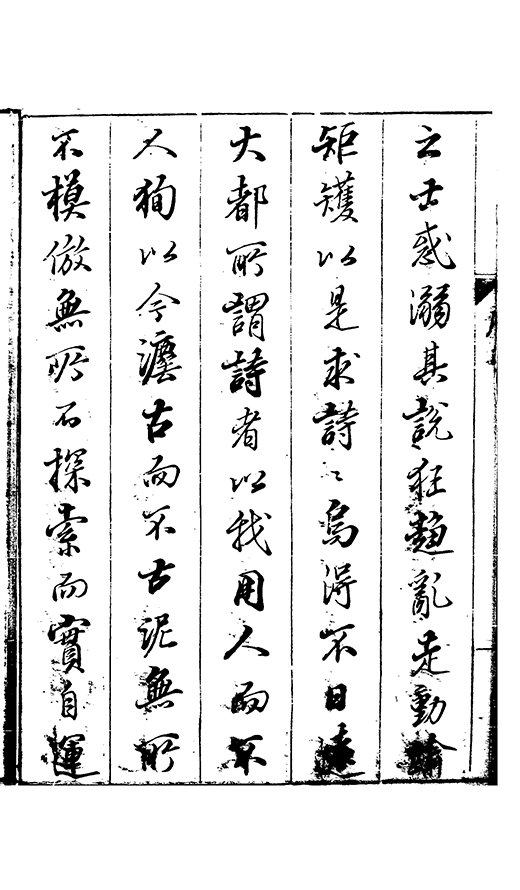 之士惑溺其說狂趨亂走動踰
矩矱以是求詩〻烏得不日遠
大都所謂詩者以我用人而不
人狥以今灋古而不古泥無所
不模倣無所不探索而實自運